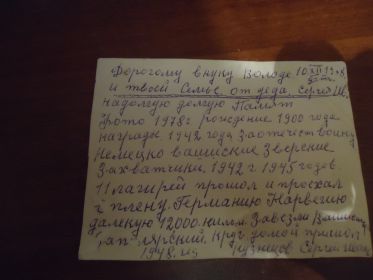 Дорогому внуку Володе 10 XII 1978
и твоей Семье от деда. Сергея Ив.
на долгую долгую Памят
Фото 1978г рождение 1900 года
награды 1942 года За отечест воину
Немецко вашиские Зверские
Захватики. 1942 г 1945 годов.
11 лагирей прошол и проехал
в плену. Германию Нарвегию
далекую 12000. килом. Завезли
круг домой пришол
1948. Кузнецов Сергей